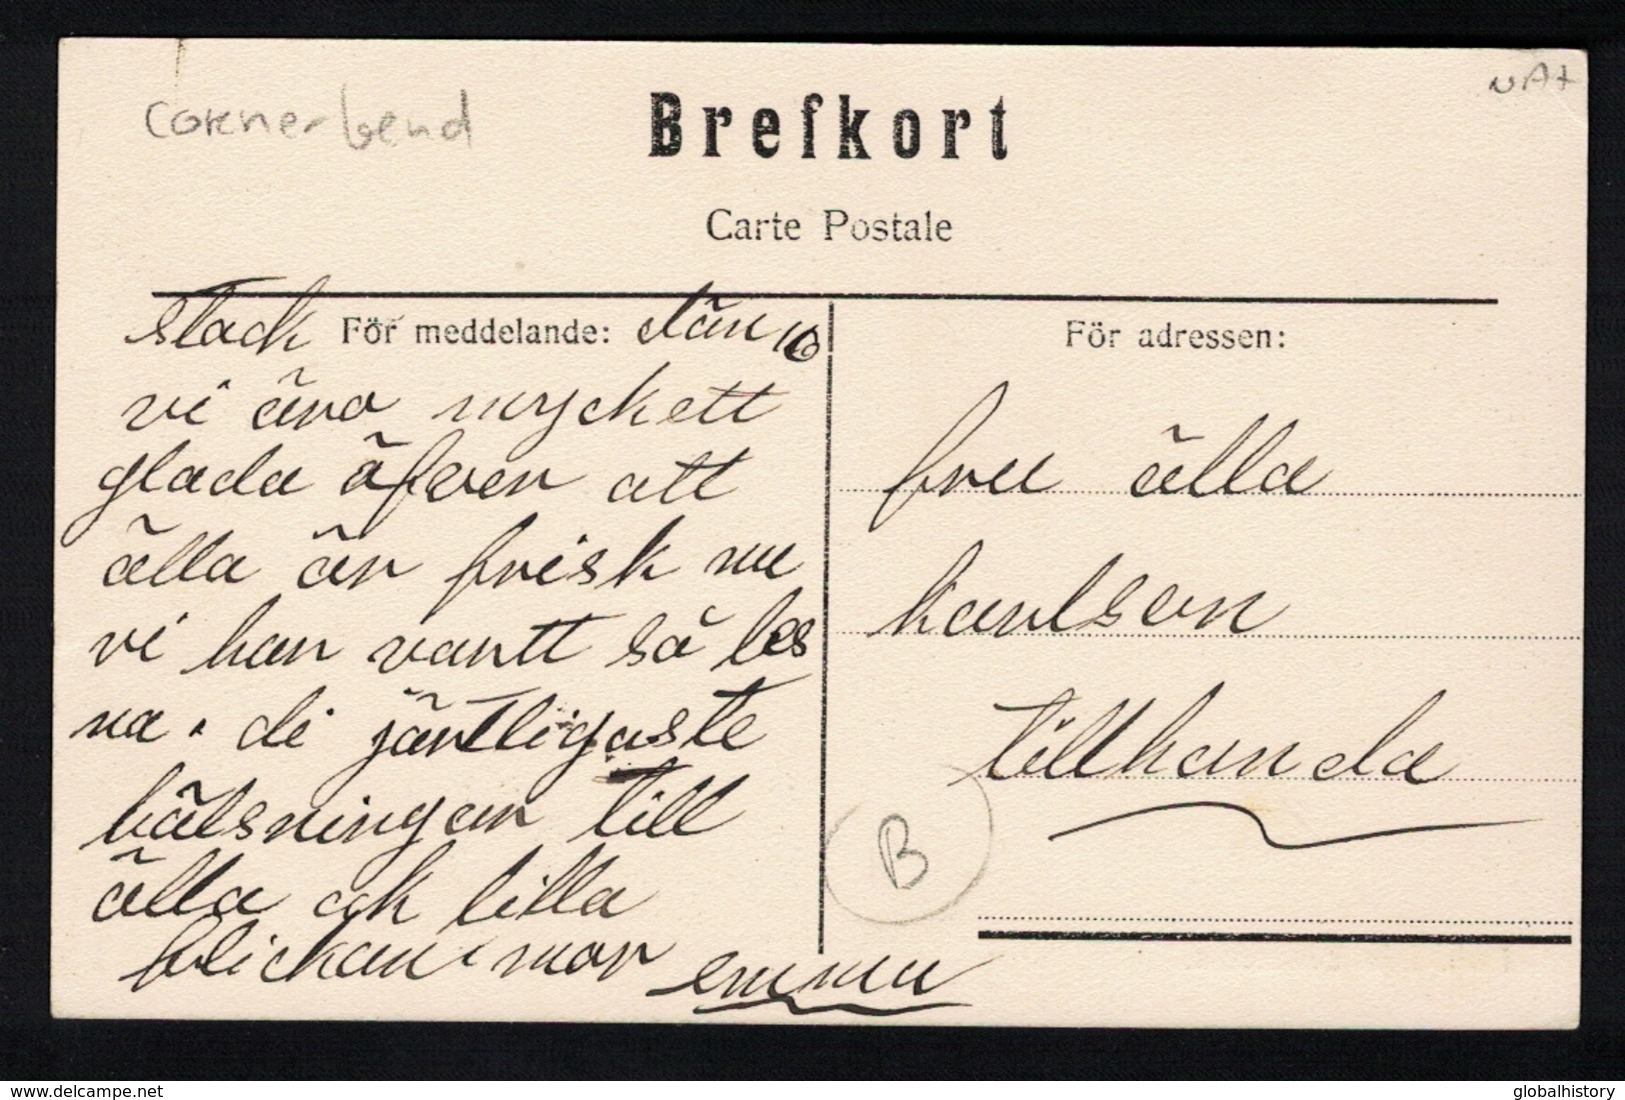 corner bend
NAT
Brefkort
Carte Postale
stack För meddelande: dän 16
För adressen:
vi äro myckett
glada äfven att
älla är frisk nu
vi han vantt så les
na. di järtligaste
hälsningar till
älla ock lilla
flickan mor emma
fru älla
karlson
tillhanda
B
www.delcampe.net
globalhistory